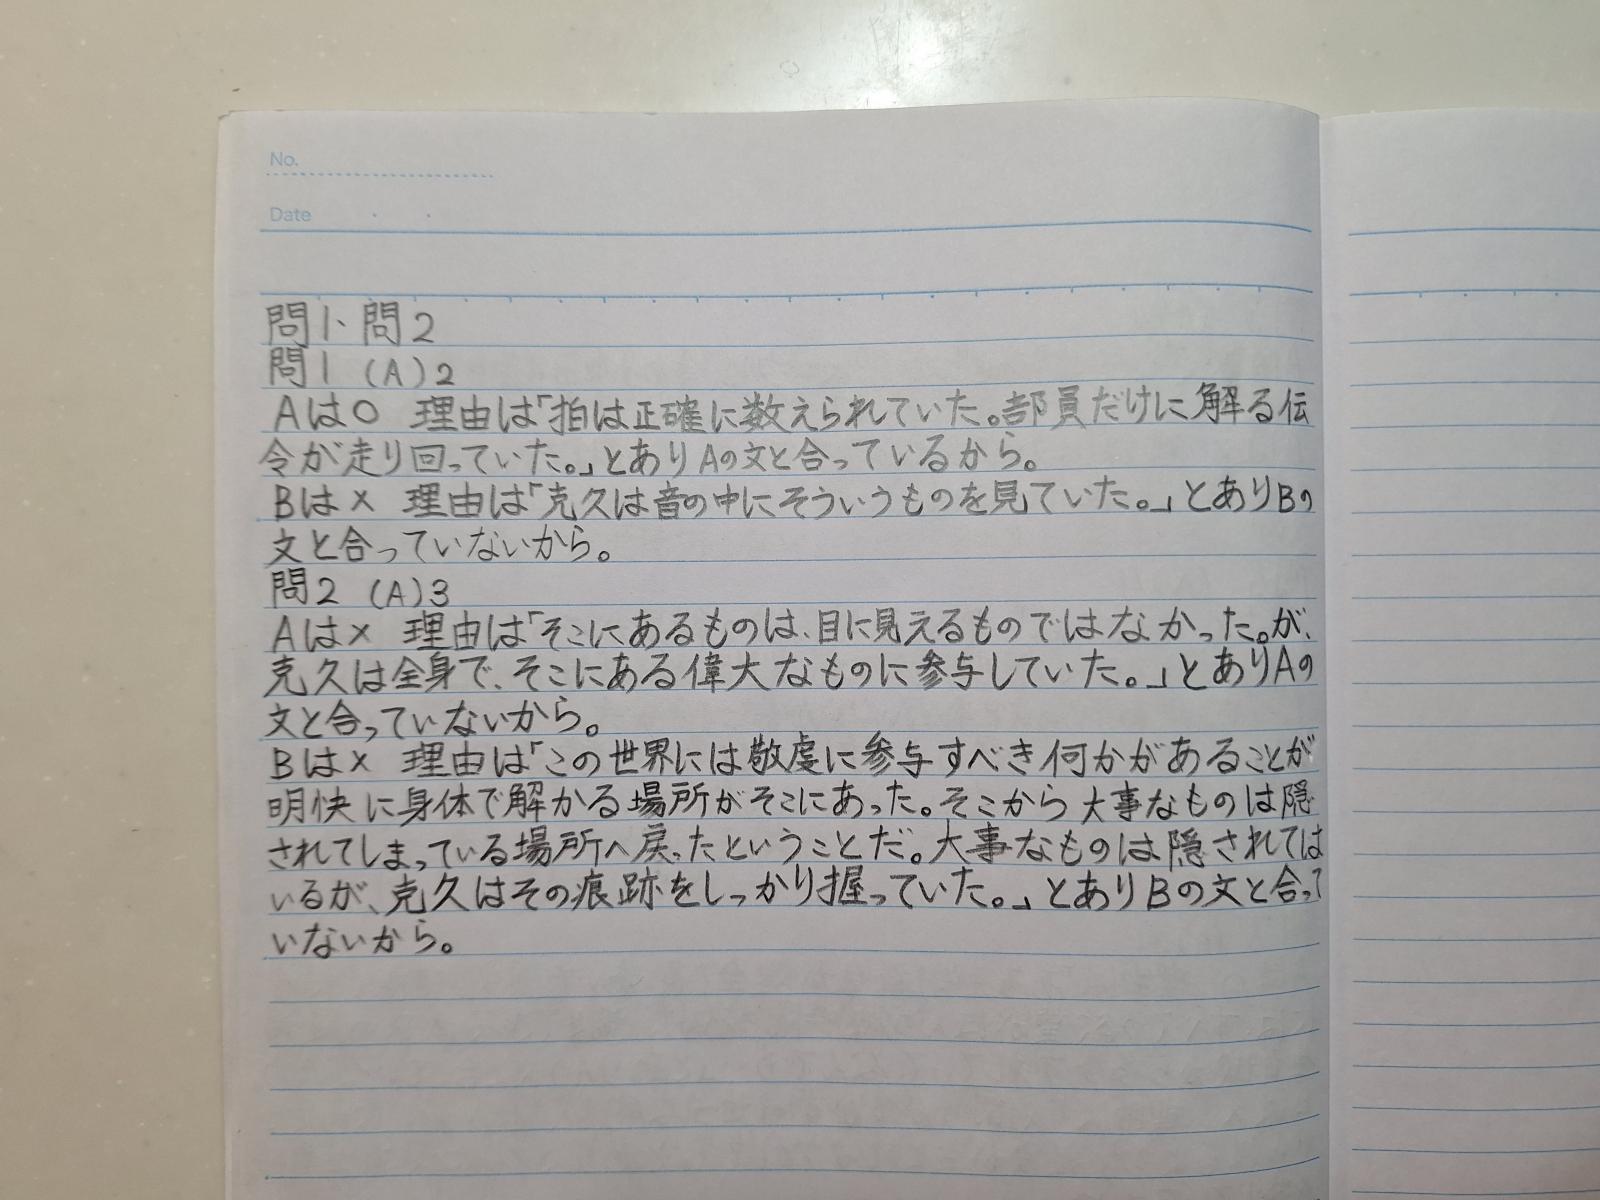 No.
Date
問1、問2
問1 (A)2
Aは○ 理由は「拍は正確に数えられていた。部員だけに解る伝
令が走り回っていた。」とありAの文と合っているから。
Bは× 理由は「克久は音の中にそういうものを見ていた。」とありBの
文と合っていないから。
問2 (A)3
Aは× 理由は「そこにあるものは、目に見えるものではなかった。が、
克久は全身で、そこにある偉大なものに参与していた。」とありAの
文と合っていないから。
Bは× 理由は「この世界には敬虔に参与すべき何かがあることが
明快に身体で解かる場所がそこにあった。そこから大事なものは隠
されてしまっている場所へ戻ったということだ。大事なものは隠されては
いるが、克久はその痕跡をしっかり握っていた。」とありBの文と合って
いないから。